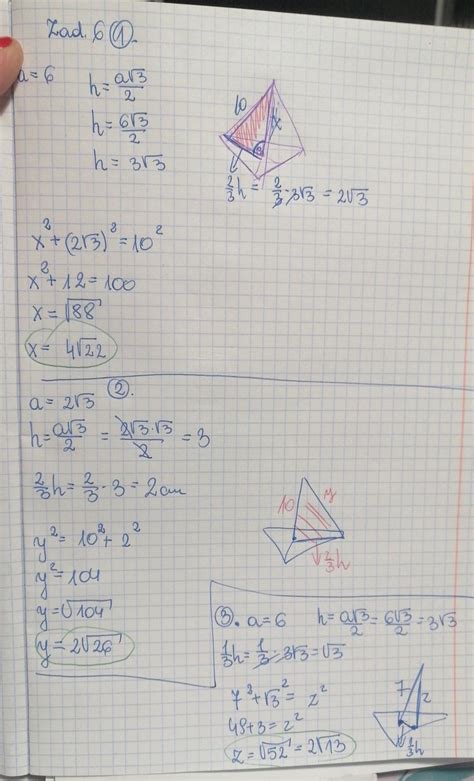 Zad. 6 ①.
a=6 h=a√3/2
h=6√3/2
h=3√3
10
x
2/3h = 2/3·3√3=2√3
x²+(2√3)²=10²
x²+12=100
x=√88
x= 4√22
②.
a=2√3
h=a√3/2 = 2√3·√3/2 = 3
2/3h=2/3·3=2cm
10 y
2/3h
y²=10²+2²
y²=104
y=√104
y=2√26
③. a=6 h=a√3/2=6√3/2=3√3
1/3h=1/3·3√3=√3
7²+√3²=z²
49+3=z²
z=√52=2√13
7 z
1/3h